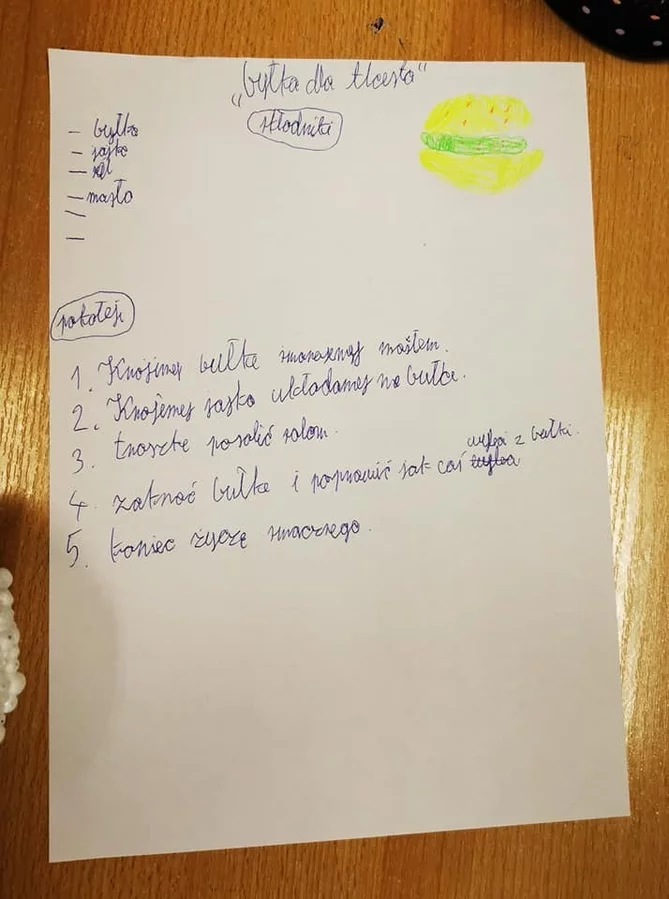 "bytka dla tlcesta"
składniki
- bytka
- jajko
- sól
- masło
-
-
pokoleji
1. Knojimy bułke smarujemy masłem.
2. Knojemy jajko układamy na bułce.
3. troszke posolić solom.
4. zaknoć bułke i poprawić jak coś wylzi z bułki.
5. koniec życzę smacznego.